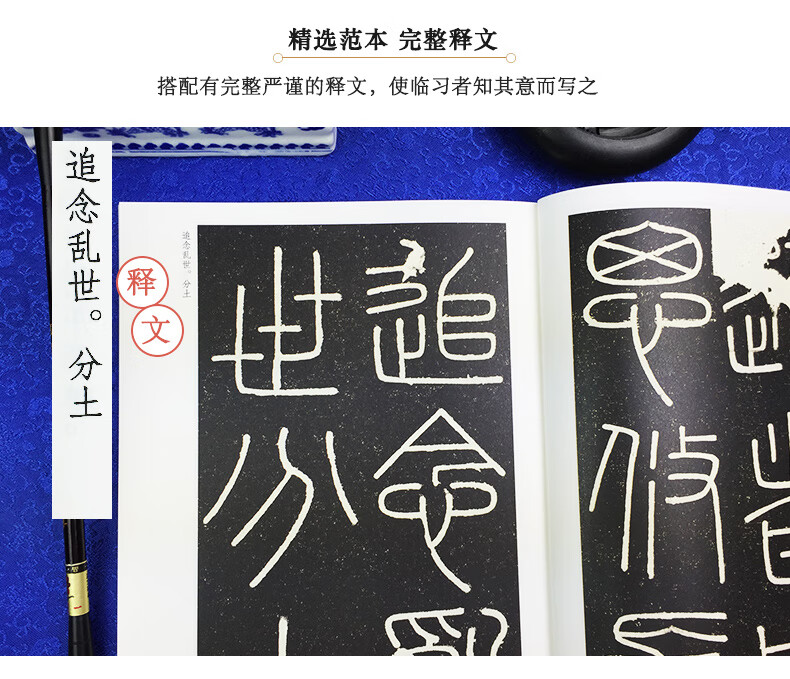 精选范本 完整释文
搭配有完整严谨的释文，使临习者知其意而写之
追念乱世。分土
释文
追念乱世。分土
追念乱
世分土
思
攸